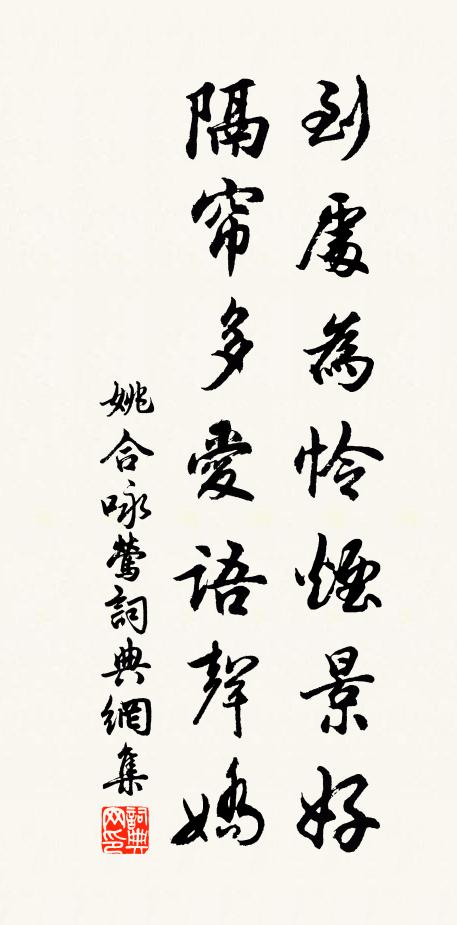 到處為憐煙景好
隔帘多愛語聲嬌
姚合咏鶯詞典網集
詞典网印